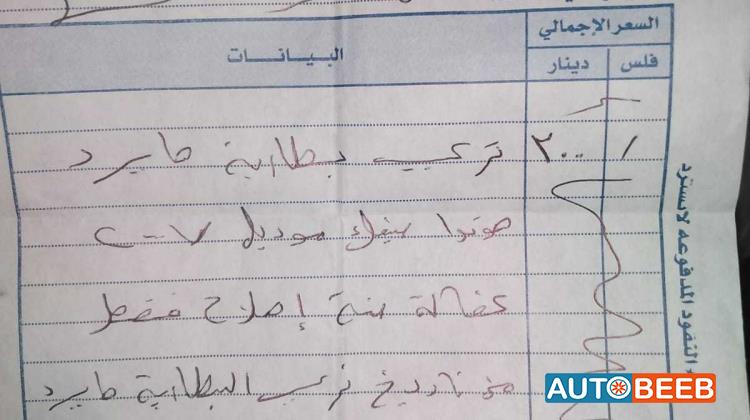 السعر الإجمالي
فلس دينار البيانات
٢٠٠٠ تركيب بطارية هايبرد
هوندا سيفك موديل ٢٠٠٧
كفالة سنة إصلاح فقط
من تاريخ تركيب البطارية هايبرد
النقود المدفوعه لا تسترد
AUTOBEEB